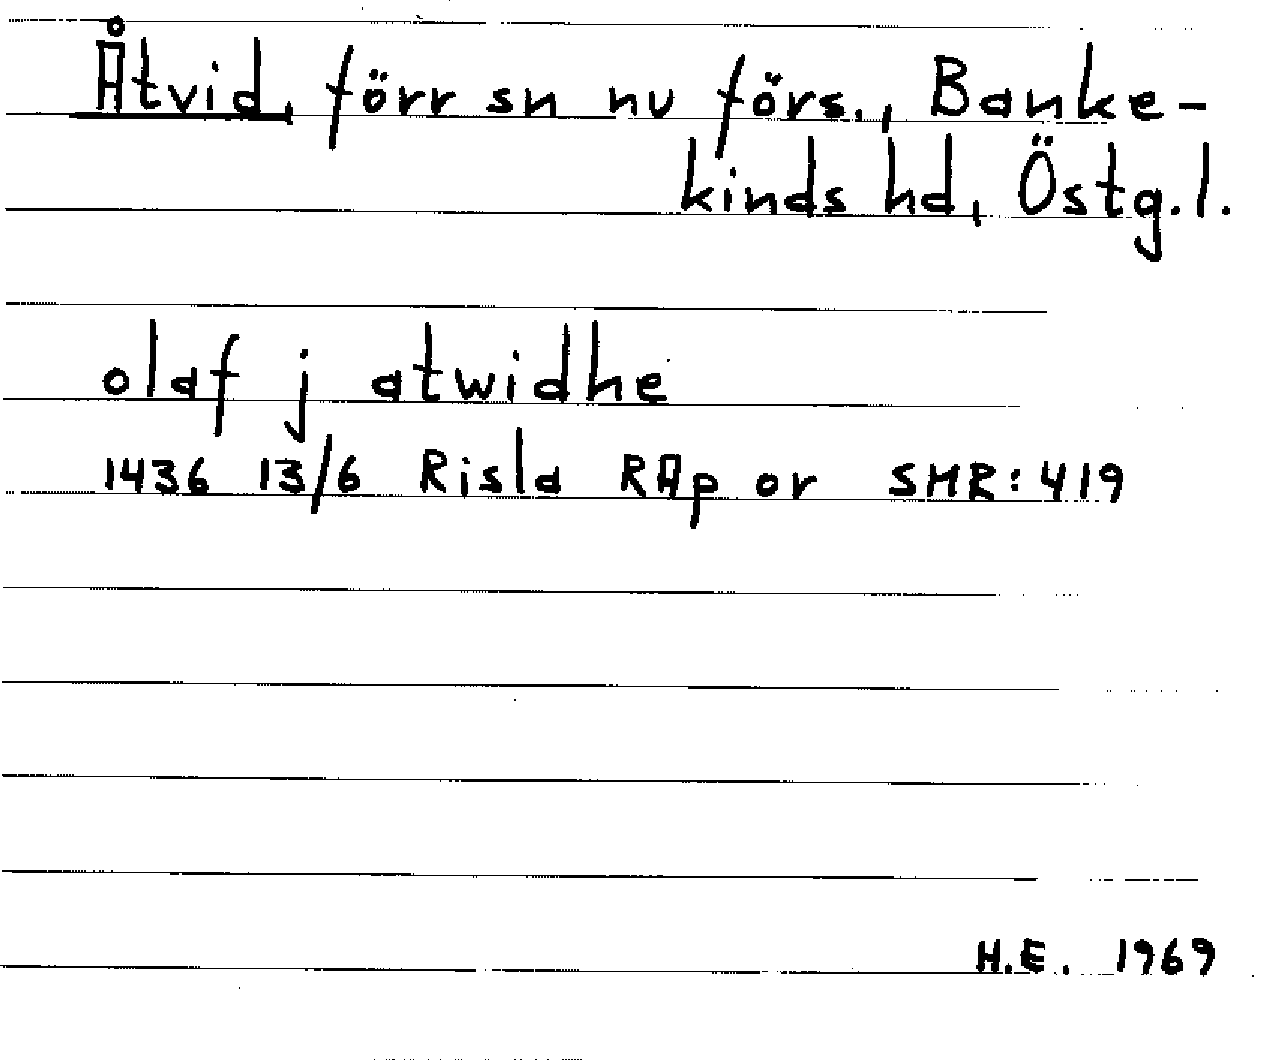 Åtvid, förr sn nu förs., Banke-
kinds hd, Östg.l.
olaf j atwidhe
1436 13/6 Risla RAp or SMR:419
H.E. 1969